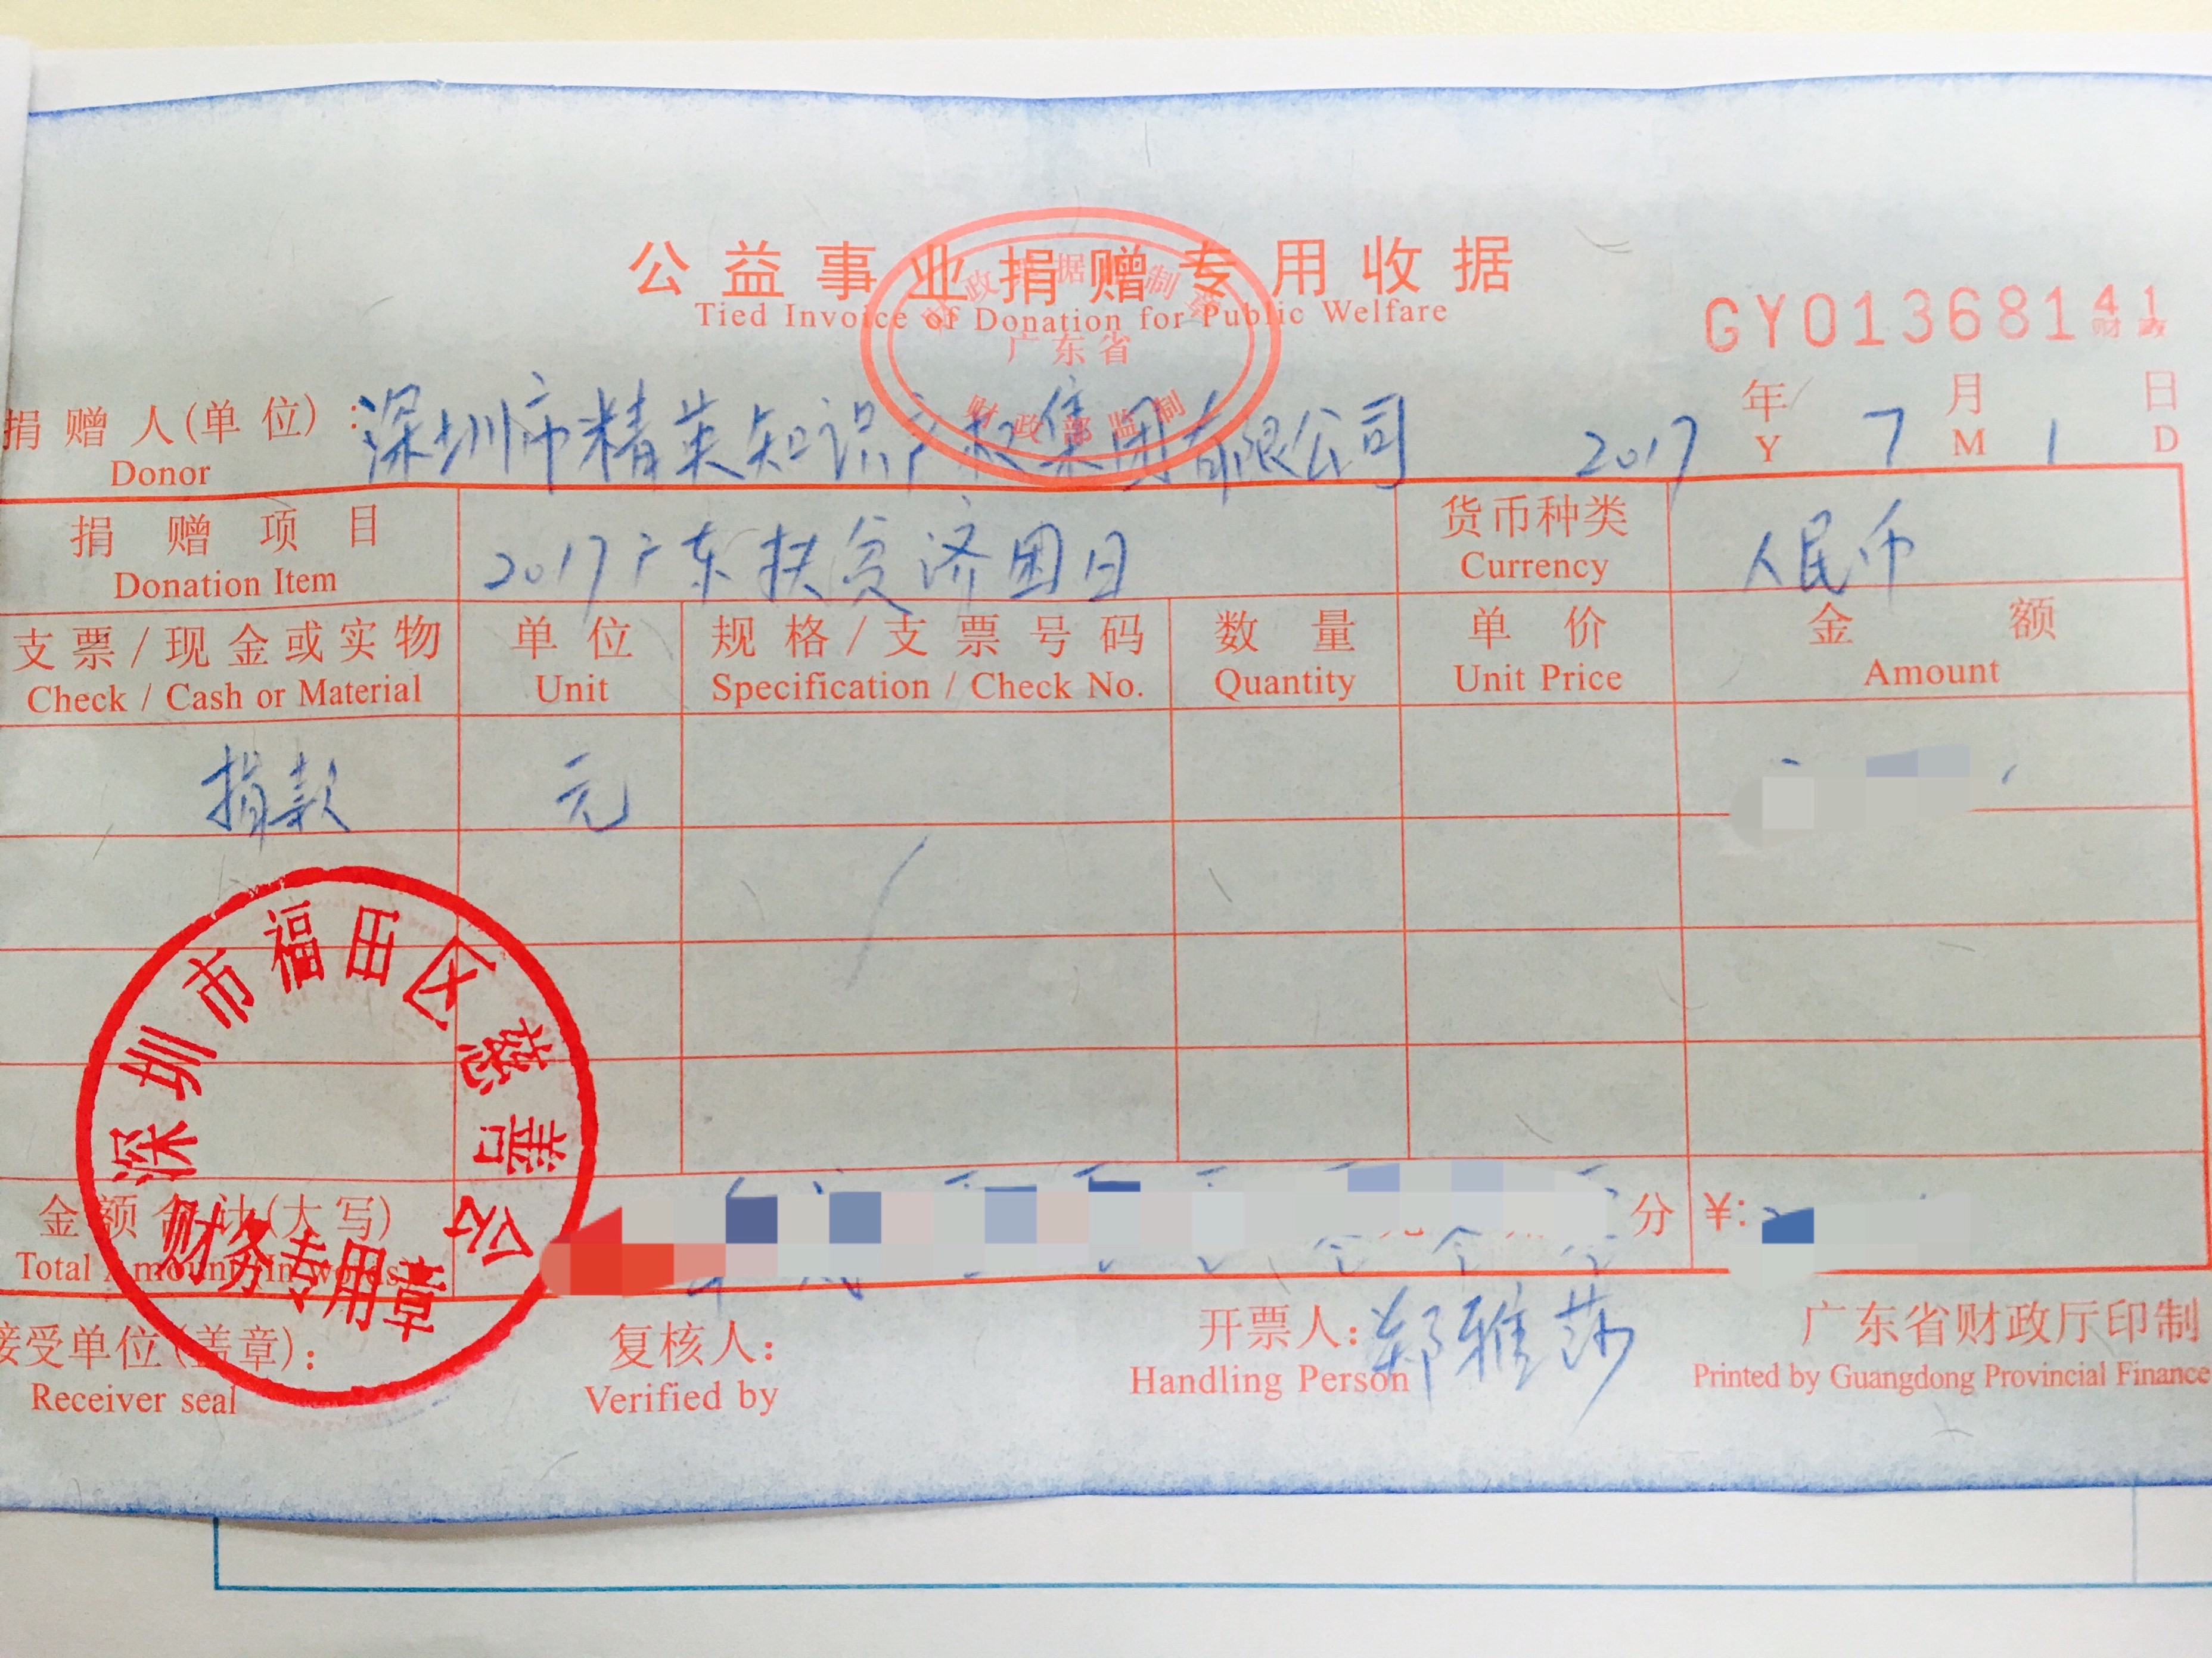 公益事业捐赠专用收据
Tied Invoice of Donation for Public Welfare
广东省
财政部监制
GY01368141
财政
捐赠人(单位):深圳市精英知识产权集团有限公司 2017年7月1日
Donor Y M D
捐赠项目 2017广东扶贫济困日 货币种类 人民币
Donation Item Currency
支票/现金或实物 单位 规格/支票号码 数量 单价 金额
Check / Cash or Material Unit Specification / Check No. Quantity Unit Price Amount
捐款 元
深圳市福田区慈善公
财务专用章
金额合计(大写) 分 ¥:
Total Amount In words
接受单位(盖章): 复核人: 开票人:郑雅莎 广东省财政厅印制
Receiver seal Verified by Handling Person Printed by Guangdong Provincial Finance